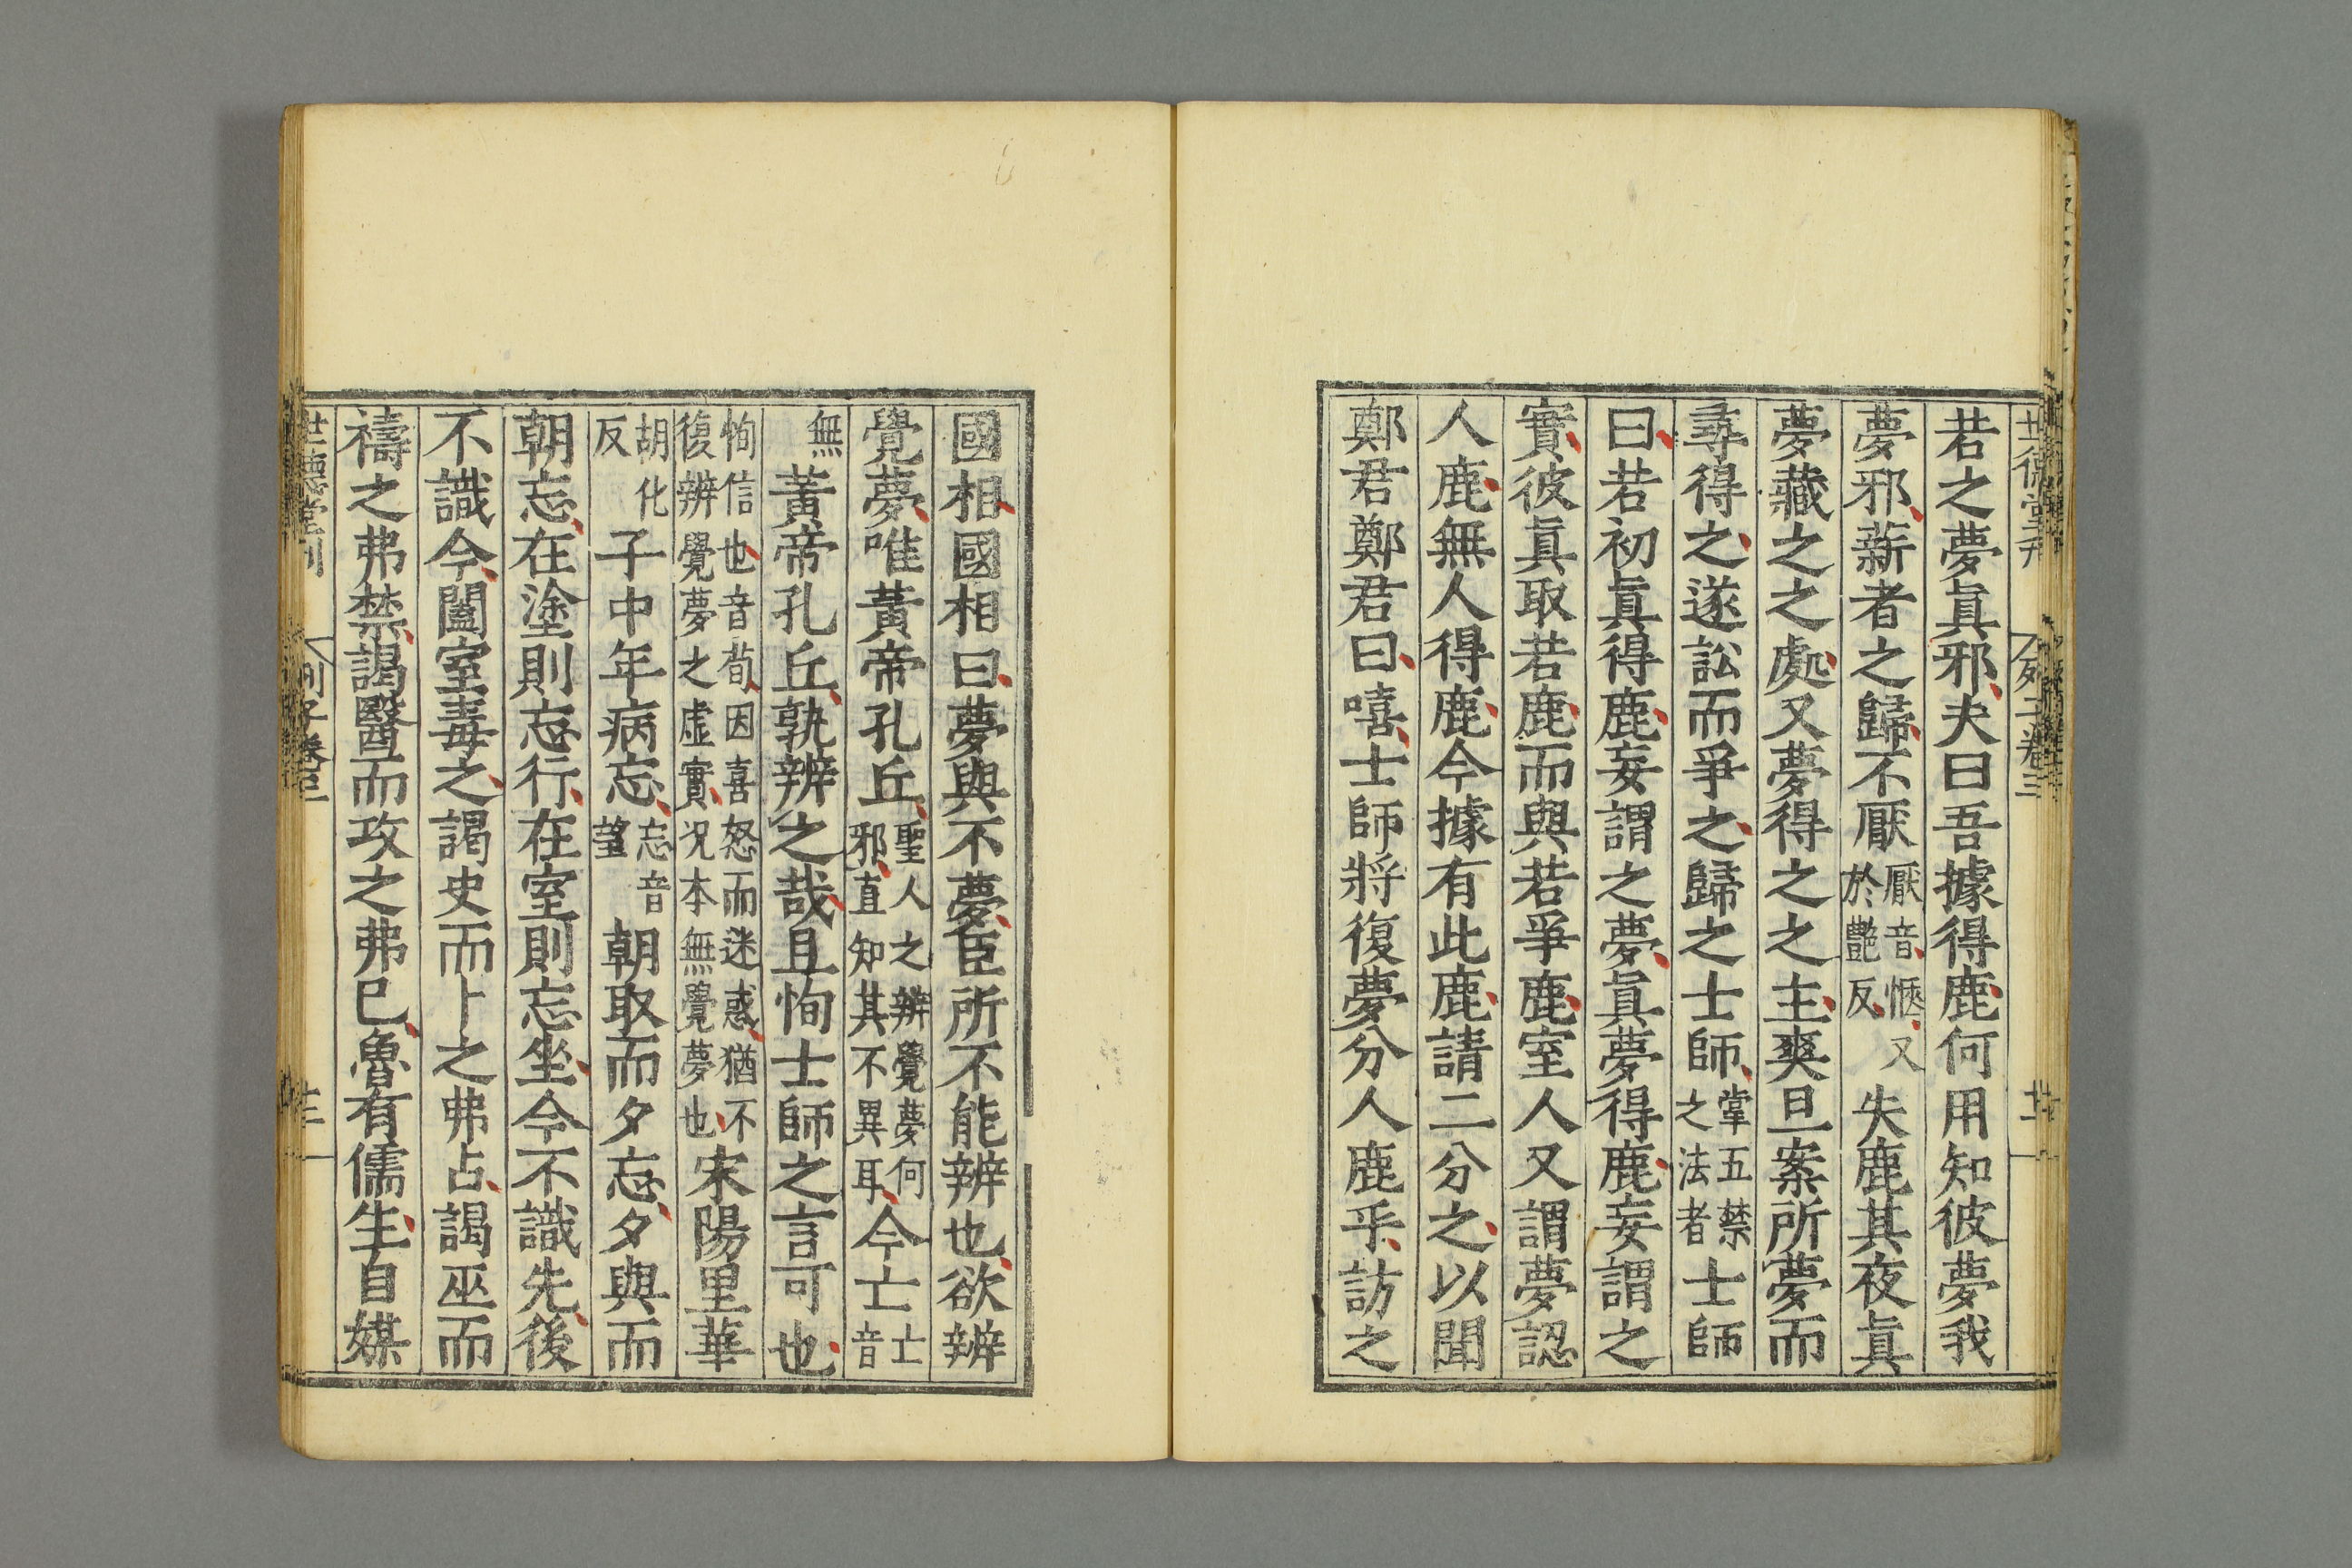 若之夢眞邪夫曰吾據得鹿何用知彼夢我
夢邪薪者之歸不厭厭音愜又於豔反失鹿其夜眞
夢藏之之處又夢得之之主爽旦案所夢而
尋得之遂訟而爭之歸之士師掌五禁之法者士師
曰若初眞得鹿妄謂之夢眞夢得鹿妄謂之
實彼眞取若鹿而與若爭鹿室人又謂夢認
人鹿無人得鹿今據有此鹿請二分之以聞
鄭君鄭君曰嘻士師將復夢分人鹿乎訪之
國相國相曰夢與不夢臣所不能辨也欲辨
覺夢唯黃帝孔丘聖人之辨覺夢何邪直知其不異耳今亡亡音
無黃帝孔丘孰辨之哉且恂士師之言可也
恂信也音荀因喜怒而迷惑猶不復辨覺夢之虛實況本無覺夢也宋陽里華
胡化反子中年病忘忘音望朝取而夕忘夕與而
朝忘在塗則忘行在室則忘坐今不識先後
不識今闔室毒之謁史而卜之弗占謁巫而
禱之弗禁謁醫而攻之弗已魯有儒生自媒
世德堂刊 列子卷三